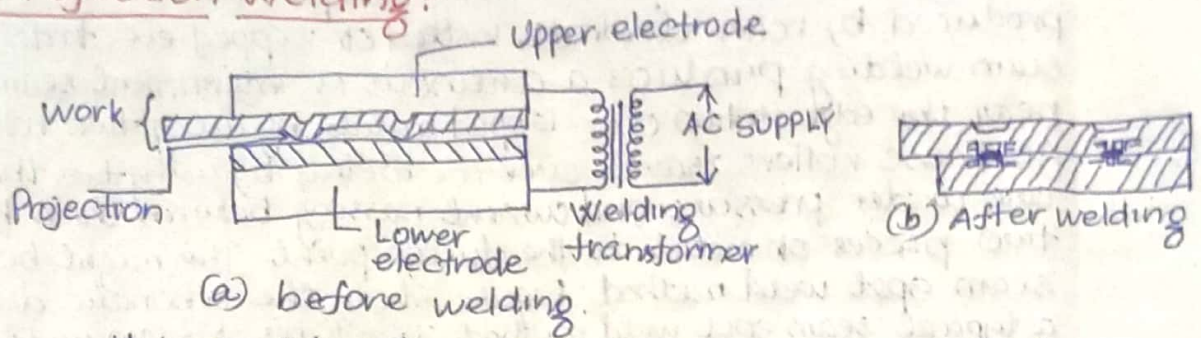 Welding.
Upper electrode
Work
AC SUPPLY
Projection
Lower
electrode
Welding
transformer
(a) before welding.
(b) After welding